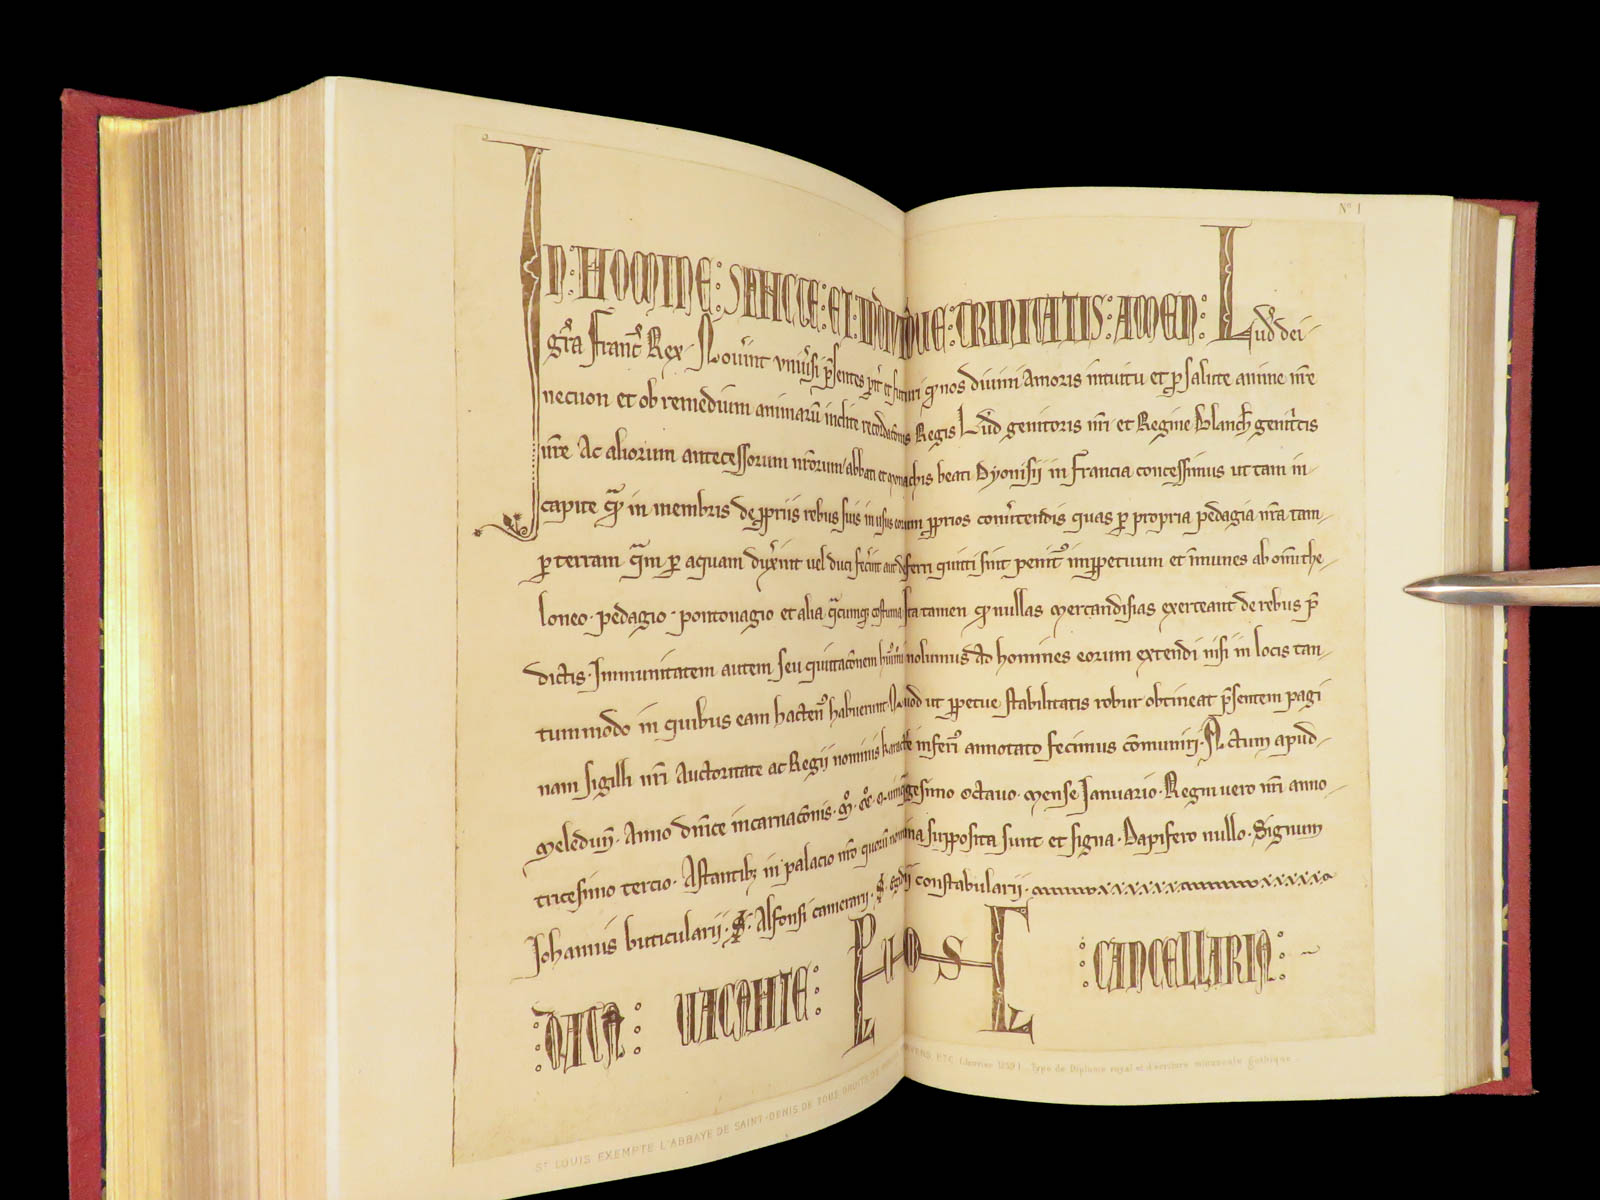 Nº 1
IN : NOMINE : SANCTE : ET : INDIVIDUE : TRINITATIS : AMEN : Lud' dei
gr̄a Franc' Rex. Nou'int vniu'si p̄sentes pit' et futuri q̄ nos diuini amoris intuitu et p salute anime nr̄e
necnon et ob remedium animarū inclite recordac̄onis Regis Lud' genitoris nr̄i et Regine Blanch' genit'cis
nr̄e Ac aliorum antecessorum nr̄orum abbati et monachis beati Dyonisii in Francia concessimus ut tam in
capite q̄m in membris de pp̄riis rebus suis in usus eorum pp̄rios conu'tendis quas p propria pedagia nr̄a tam
p terram q̄m p aquam dux'int uel duci fec'int aut deferri quitti sint penit' inp̄petuum et inmunes ab omī the
loneo. pedagio. pontonagio et alia q̄cumq; costuma Ita tamen q̄ nullas mercandisias exerceant de rebus p̄
dictis. Immunitatem autem seu quittac̄onem hui'modi nolumus ad homines eorum extendi nisi in locis tan
tummodo in quibus eam hacten' habuerunt. Quod ut pp̄etue stabilitatis robur obtineat p̄sentem pagi
nam sigilli nr̄i auctoritate ac Regii nominis karactere inferi' annotato fecimus cōmuniri. Actum apud
meledun̄. Anno dn̄ice incarnac̄onis. M̊. CC̊. quinquagesimo octauo. mense Ianuario. Regni uero nr̄i anno
tricesimo tercio. Astantib; in palacio nr̄o quorū nomina supposita sunt et signa. Dapifero nullo. Signum
Iohannis buticularii. S. Alfonsi camerarii. S. Egidii constabularii.
DATA : UACANTE : CANCELLARIA :
ST LOUIS EXEMPTE L'ABBAYE DE SAINT-DENIS DE TOUS DROITS DE ETC. (Janvier 1259). Type de Diplome royal et d'écriture minuscule gothique.